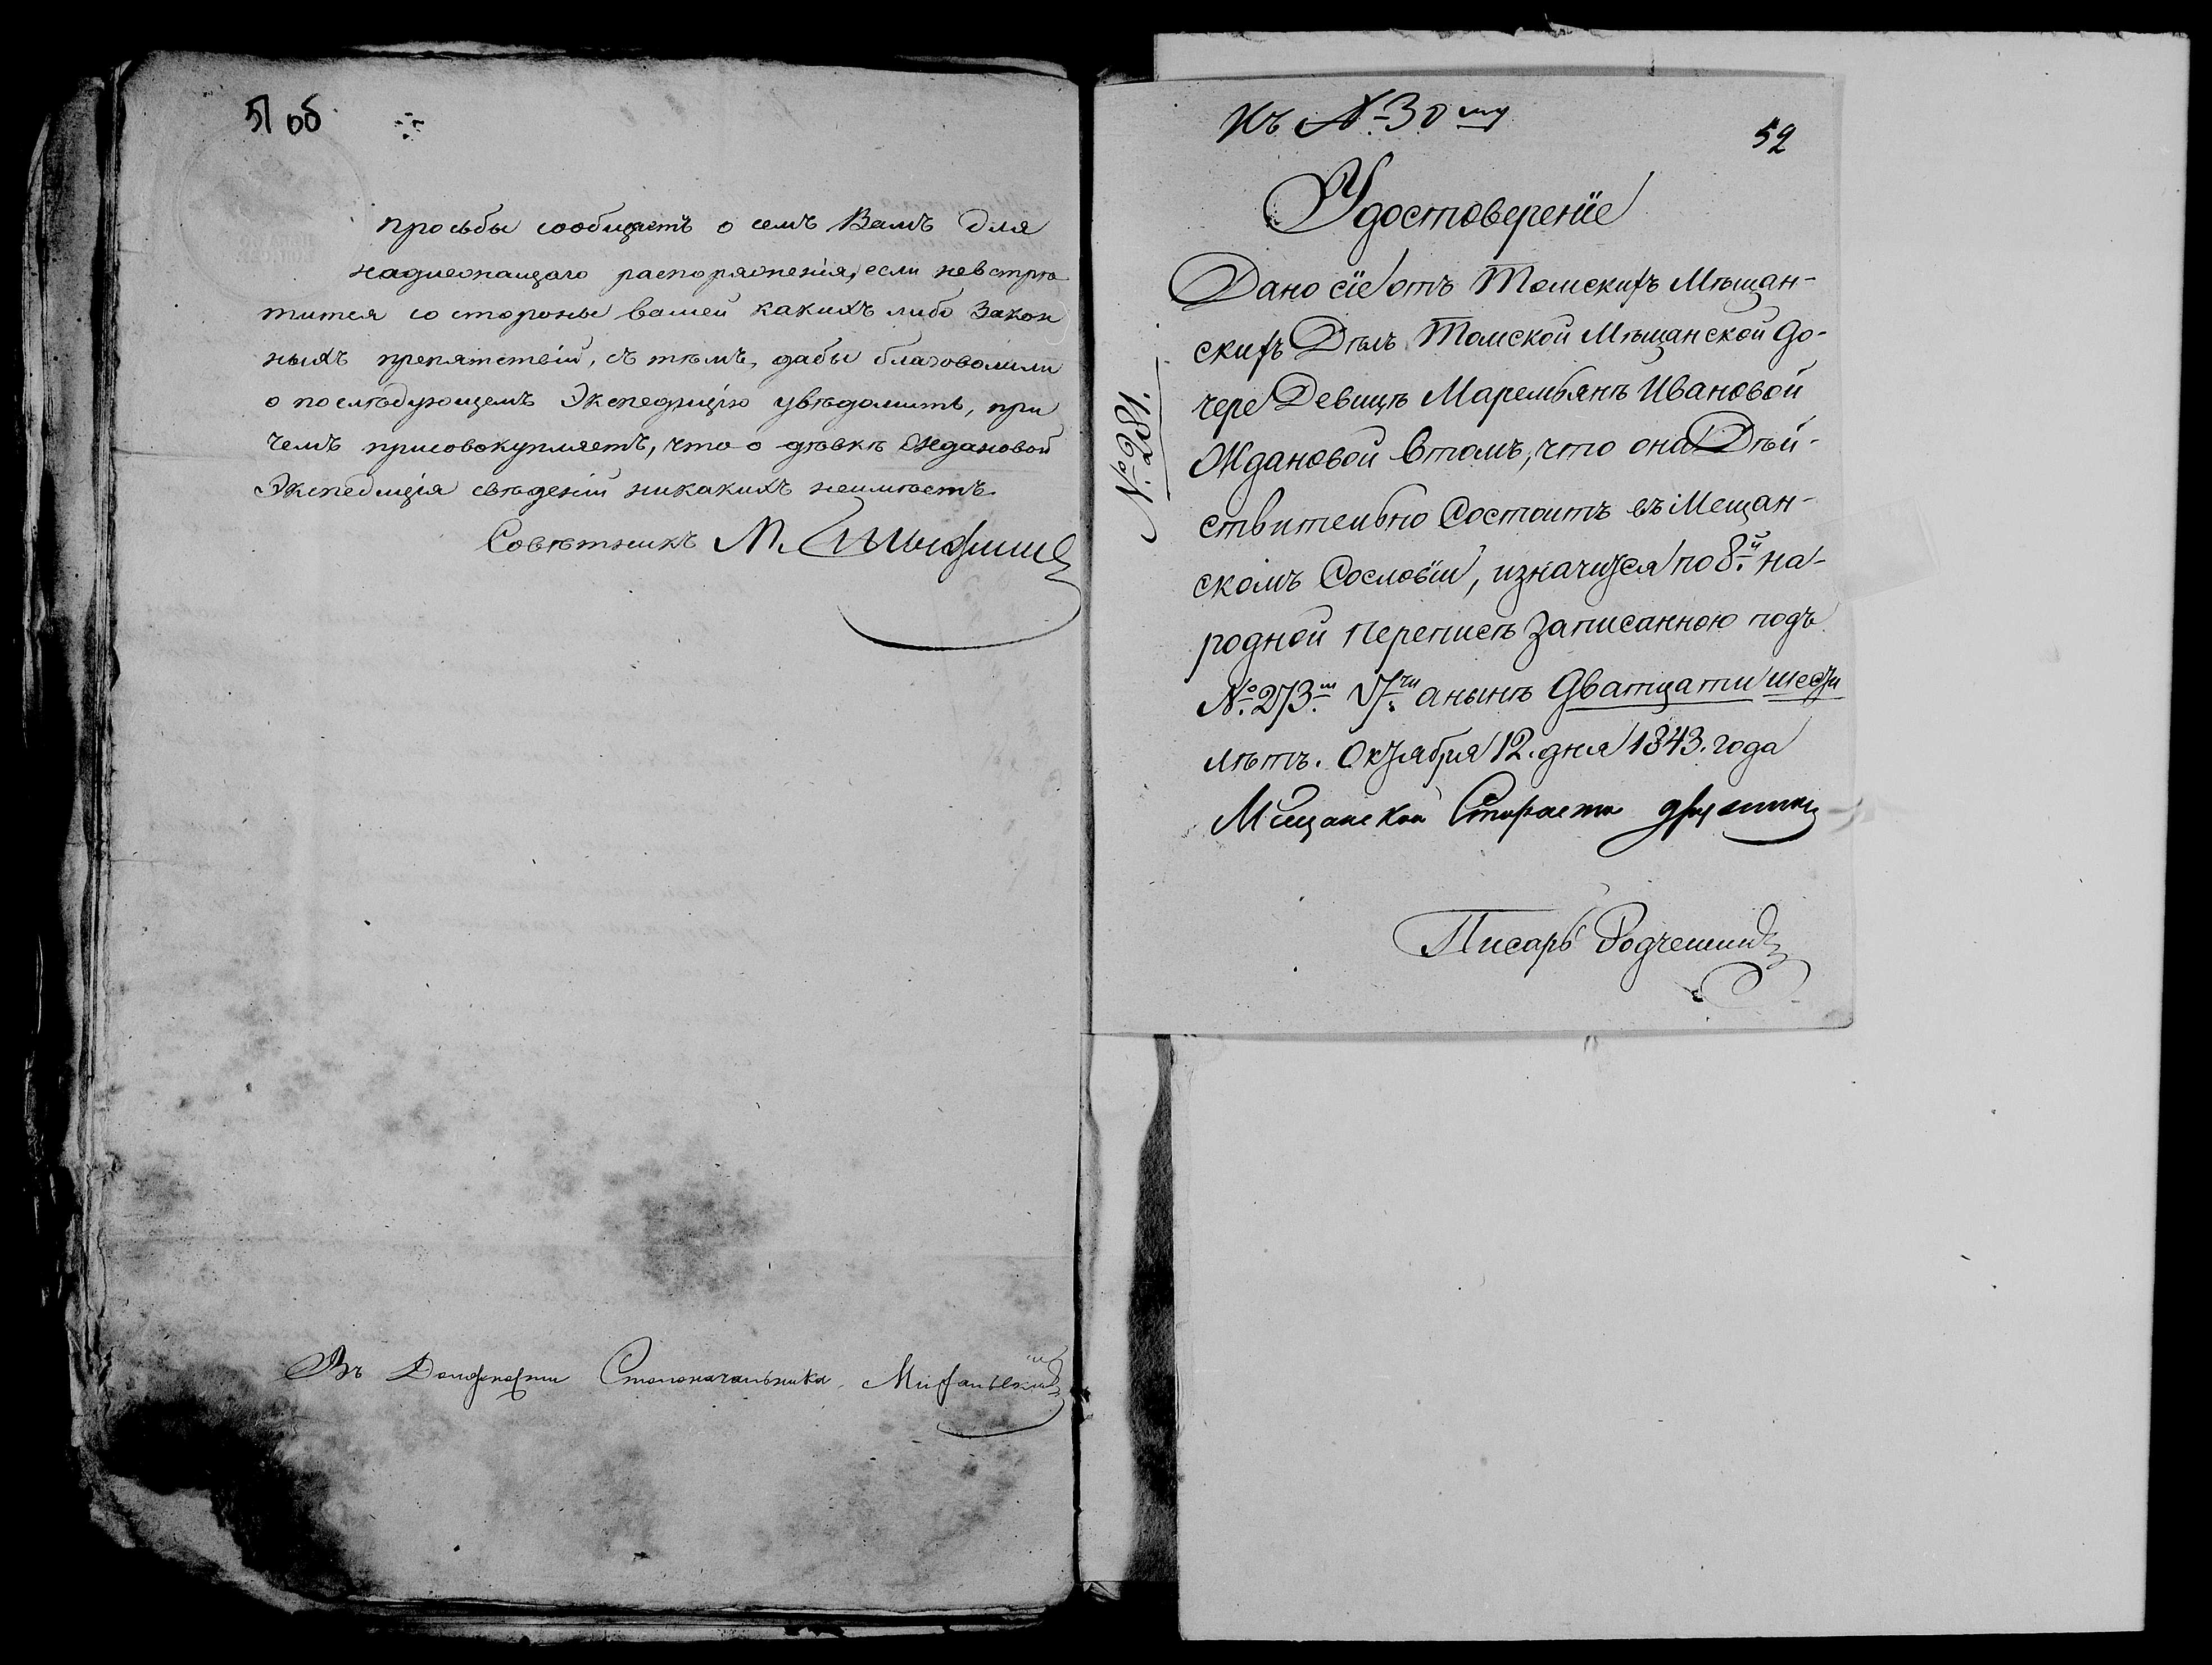 51 об
просьбы сообщаетъ о семъ Вамъ для
надлежащаго распоряженія, если невстрѣ
тится со стороны вашей какихъ либо закон
ныхъ препятствій, съ тѣмъ, дабы благоволили
о послѣдующемъ Экспедицію увѣдомить, при
чемъ присовокупляетъ, что о дѣвкѣ Ждановой
Экспедиція свѣденій никакихъ неимѣетъ.
Совѣтникъ М.
Въ Должности Столоначальника
Къ № 30му
52
Удостоверенїе
Дано сїе отъ Томскихъ Мѣщан-
скихъ Дѣлъ Томской Мѣщанской до-
чере Девицѣ Маремьянѣ Ивановой
Ждановой втомъ, что она Дѣй-
ствительно Состоитъ въ Мещан-
скомъ Сословїи, изначится по 8й на-
родной переписѣ записанною подъ
№ 273м 7ми анынѣ дватцати шести
лѣтъ. Октября 12. дня 1843. года
Мещанской Староста
Писарь
№ 281.